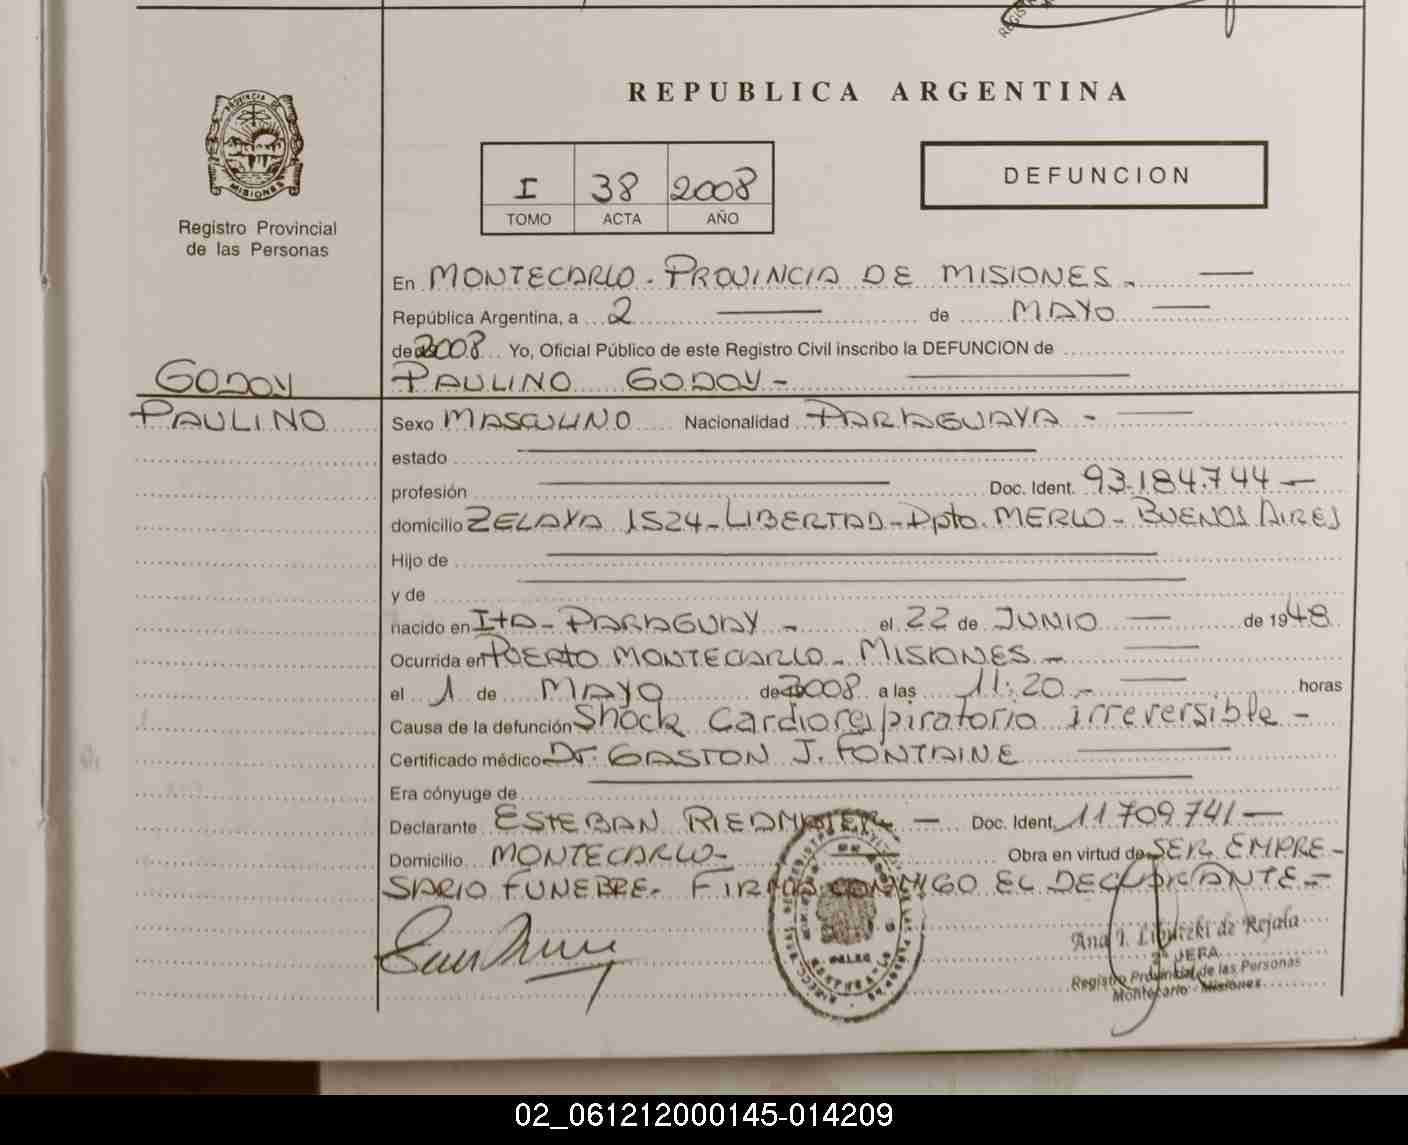 REPUBLICA ARGENTINA
PROVINCIA DE
MISIONES
Registro Provincial
de las Personas
I 38 2008
TOMO ACTA AÑO
DEFUNCION
En MONTECARLO - PROVINCIA DE MISIONES -
República Argentina, a 2 de MAYO
de 2008 Yo, Oficial Público de este Registro Civil inscribo la DEFUNCION de
GODOY
PAULINO GODOY -
PAULINO
Sexo MASCULINO Nacionalidad PARAGUAYA -
estado
profesión Doc. Ident. 93.184.744 -
domicilio ZELAYA 1524 - LIBERTAD - Dpto. MERLO - BUENOS AIRES
Hijo de
y de
nacido en ITA - PARAGUAY - el 22 de JUNIO de 1948
Ocurrida en PUERTO MONTECARLO - MISIONES -
el 1 de MAYO de 2008 a las 11:20 - horas
Causa de la defunción Shock cardiorespiratorio irreversible -
Certificado médico Dr. GASTON J. FONTAINE
Era cónyuge de
Declarante ESTEBAN RIEDMAIER - Doc. Ident. 11.709.741 -
Domicilio MONTECARLO - Obra en virtud de SER EMPRE-
SARIO FUNEBRE. FIRMA CONMIGO EL DECLARANTE. -
Ana I. de Rejala
JEFA
Registro Provincial de las Personas
Montecarlo - Misiones
02_061212000145-014209